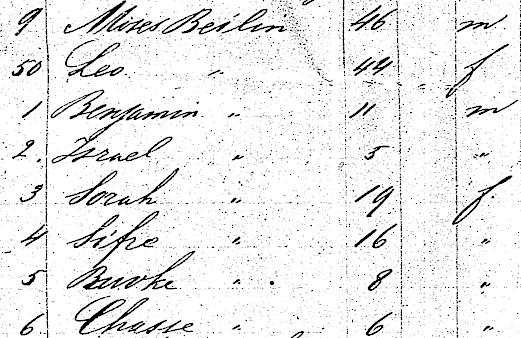 9 Moses Beilin 46 m
50 Leo " 44 f
1 Benjamin " 11 m
2. Israel " 5 "
3 Sorah " 19 f
4 Sifre " 16 "
5 Buoke " 8 "
6 Chasse " 6 "